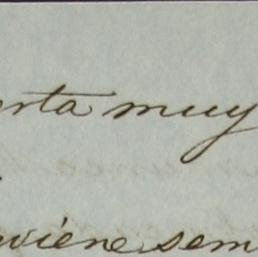 erta muy
viene sem